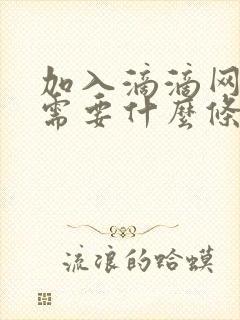 加入滴滴网
需要什麼條
流浪的蛤蟆